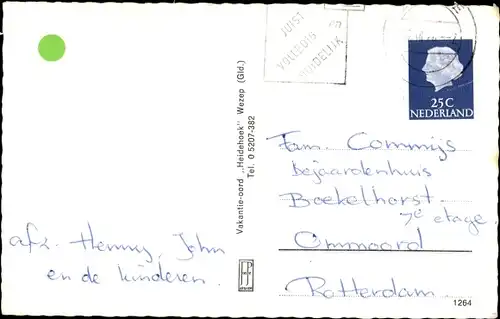 JUIST
EN
VOLLEDIG
DUIDELIJK
25C
NEDERLAND
Vakantie-oord „Heidehoek" Wezep (Gld.)
Tel. 0 5207-382
Fam. Commijs
Bejaardenhuis
Boekelhorst
7e etage
Ommoord
Rotterdam
afz. Henny, John
en de kinderen.
1264